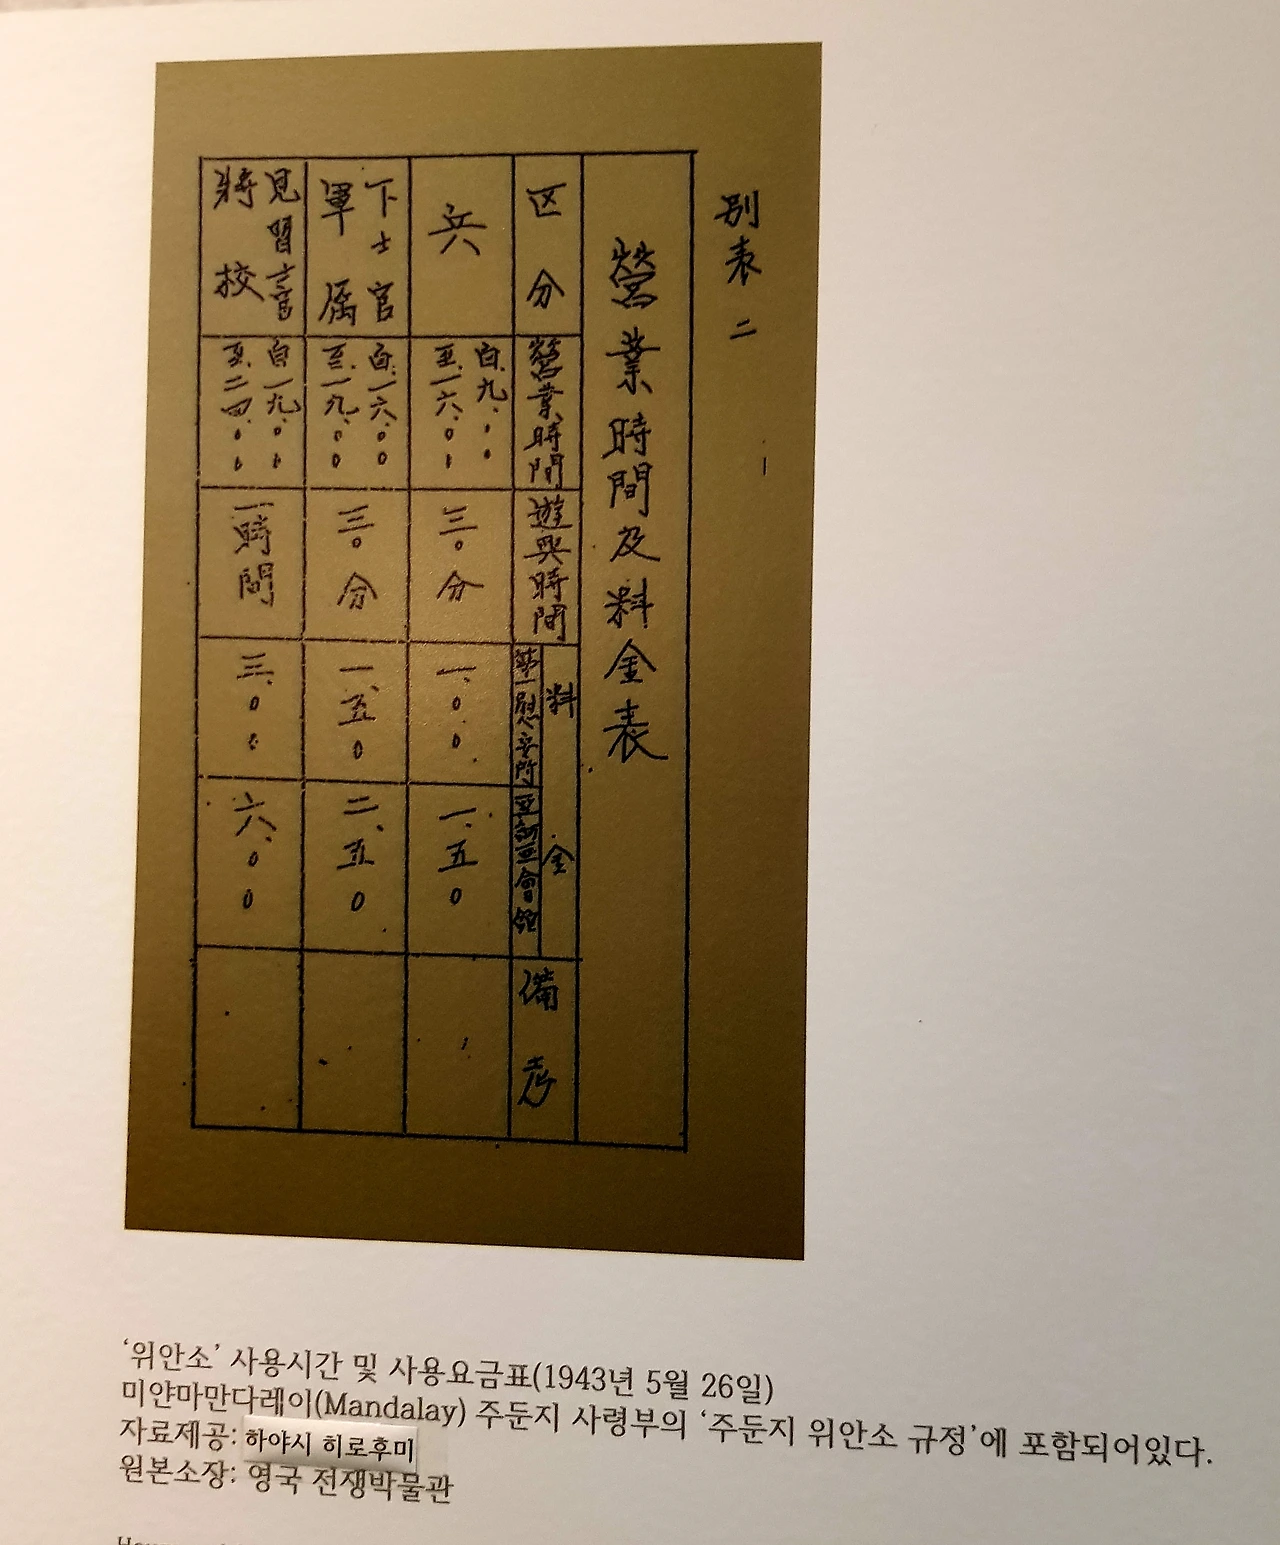 別表二
營業時間及料金表
区分
營業時間
遊興時間
料金
第一慰安所
亜細亜會館
備考
兵
自九.〇〇
至一六.〇〇
三〇分
一.〇〇
一.五〇
下士官
軍属
自一六.〇〇
至一九.〇〇
三〇分
一.五〇
二.五〇
見習士官
將校
自一九.〇〇
至二四.〇〇
一時間
三.〇〇
六.〇〇
‘위안소’ 사용시간 및 사용요금표(1943년 5월 26일)
미얀마만다레이(Mandalay) 주둔지 사령부의 ‘주둔지 위안소 규정’에 포함되어있다.
자료제공: 하야시 히로후미
원본소장: 영국 전쟁박물관